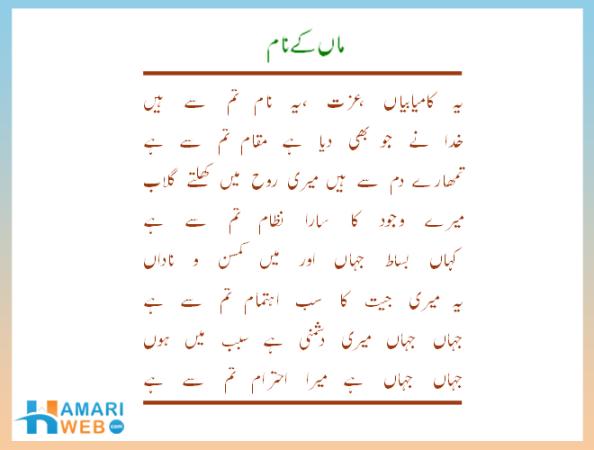 ماں کے نام
یہ کامیابیاں عزت ،یہ نام تم سے ہیں
خدا نے جو بھی دیا ہے مقام تم سے ہے
تمھارے دم سے ہیں میری روح میں کھلتے گلاب
میرے وجود کا سارا نظام تم سے ہے
کہاں بساط جہاں اور میں کمسن و ناداں
یہ میری جیت کا سب اہتمام تم سے ہے
جہاں جہاں میری دشمنی ہے سبب میں ہوں
جہاں جہاں ہے میرا احترام تم سے ہے
HAMARI
WEB.com